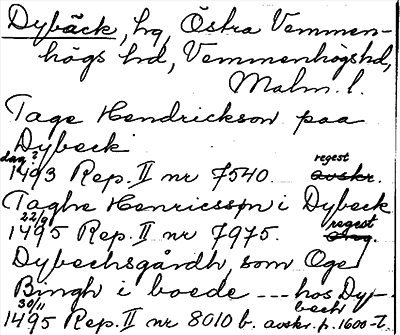 Dybäck, hg, Östra Vemmen-
högs hd, Vemmenhögs hd,
Malm. l.
Tage Hendrickson paa
Dybeck
dag? regest
1493 Rep. II nr 7540. avskr.
Taghe Henricsson i Dybeck
22/9 regest
1495 Rep. II nr 7975.
Dybechsgårdh, som Oge
Bingh i boede --- hos Dyb-
30/11 bech
1495 Rep. II nr 8010 b. avskr. p. 1600-T.